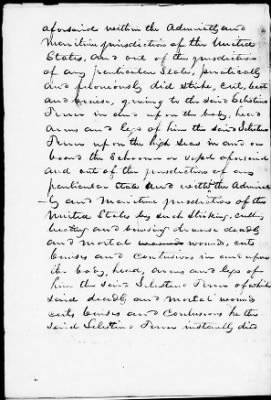 aforesaid within the Admiralty and
Maritime jurisdiction of the United
States, and out of the jurisdiction
of any particular State, piratically
and feloniously did strike, cut, beat
and bruise, giving to the said Celestino
in and upon the body, head
arms and legs of him the said Celestino
upon the high seas in and on
board the Schooner or vessel aforesaid
and out of the jurisdiction of any
particular state and within the Admiral
-ty and Maritime jurisdiction of the
United States by such striking, cutting
beating and bruising divers deadly
and mortal wounds, cuts
bruises and contusions in and upon
the body, head, arms and legs of
him the said Celestino of which
said deadly and mortal wounds
cuts bruises and contusions he the
said Celestino instantly died